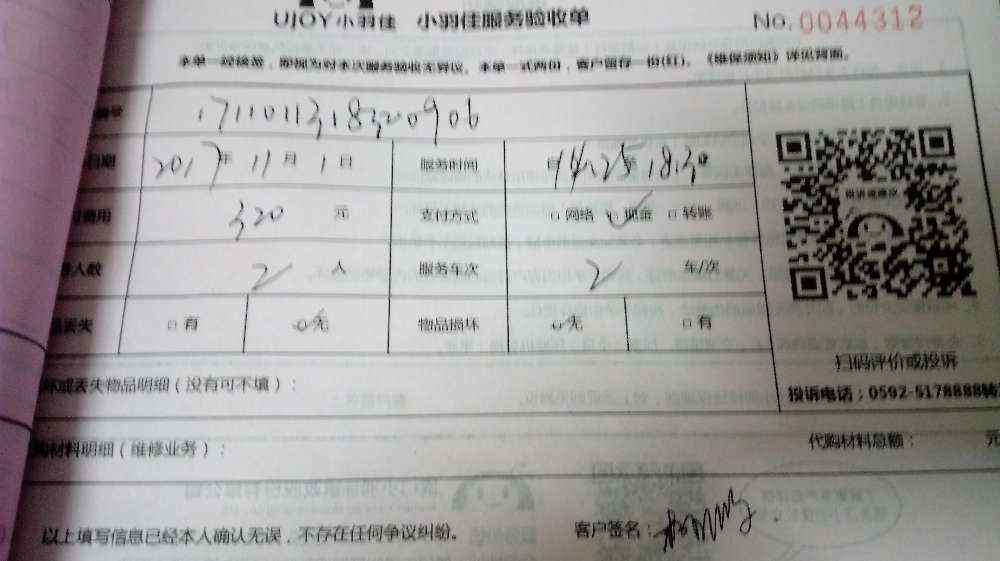 UJOY小羽佳 小羽佳服务验收单 No. 0044312
本单一经签署，即视为对本次服务验收无异议。本单一式两份，客户留存一份(红)。《维保须知》详见背面。
号 1711011318320906
日期 2017年 11月 1日 服务时间 自14:25至18:30
费用 320 元 支付方式 □网络 ☑现金 □转账
人数 2 人 服务车次 2 车/次
丢失 □有 ☑无 物品损坏 ☑无 □有
扫码评价或投诉
坏或丢失物品明细（没有可不填）：
投诉电话：0592-5178888转
购材料明细（维修业务）： 代购材料总额： 元
以上填写信息已经本人确认无误，不存在任何争议纠纷。 客户签名：